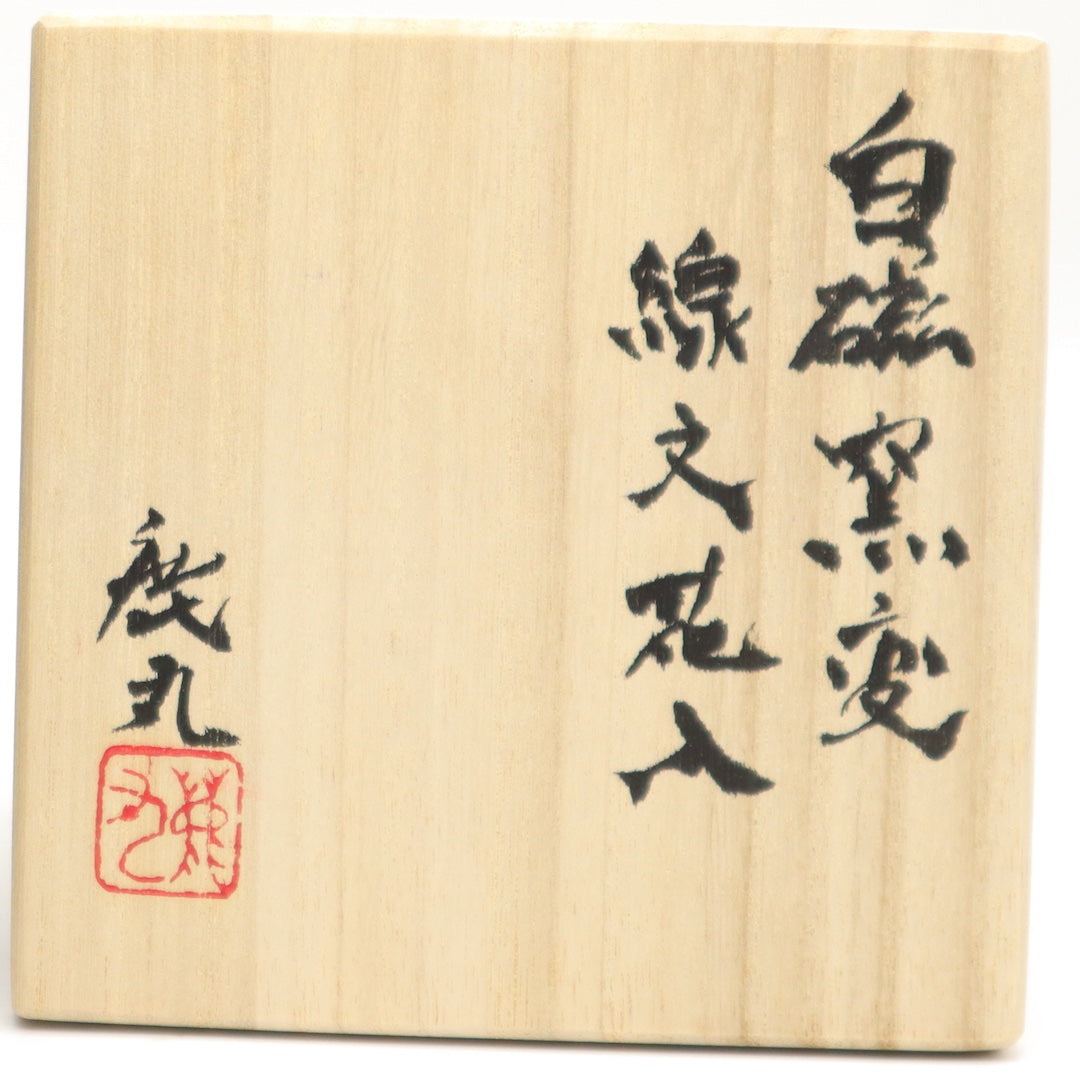 白磁窯変
線文花入
丸